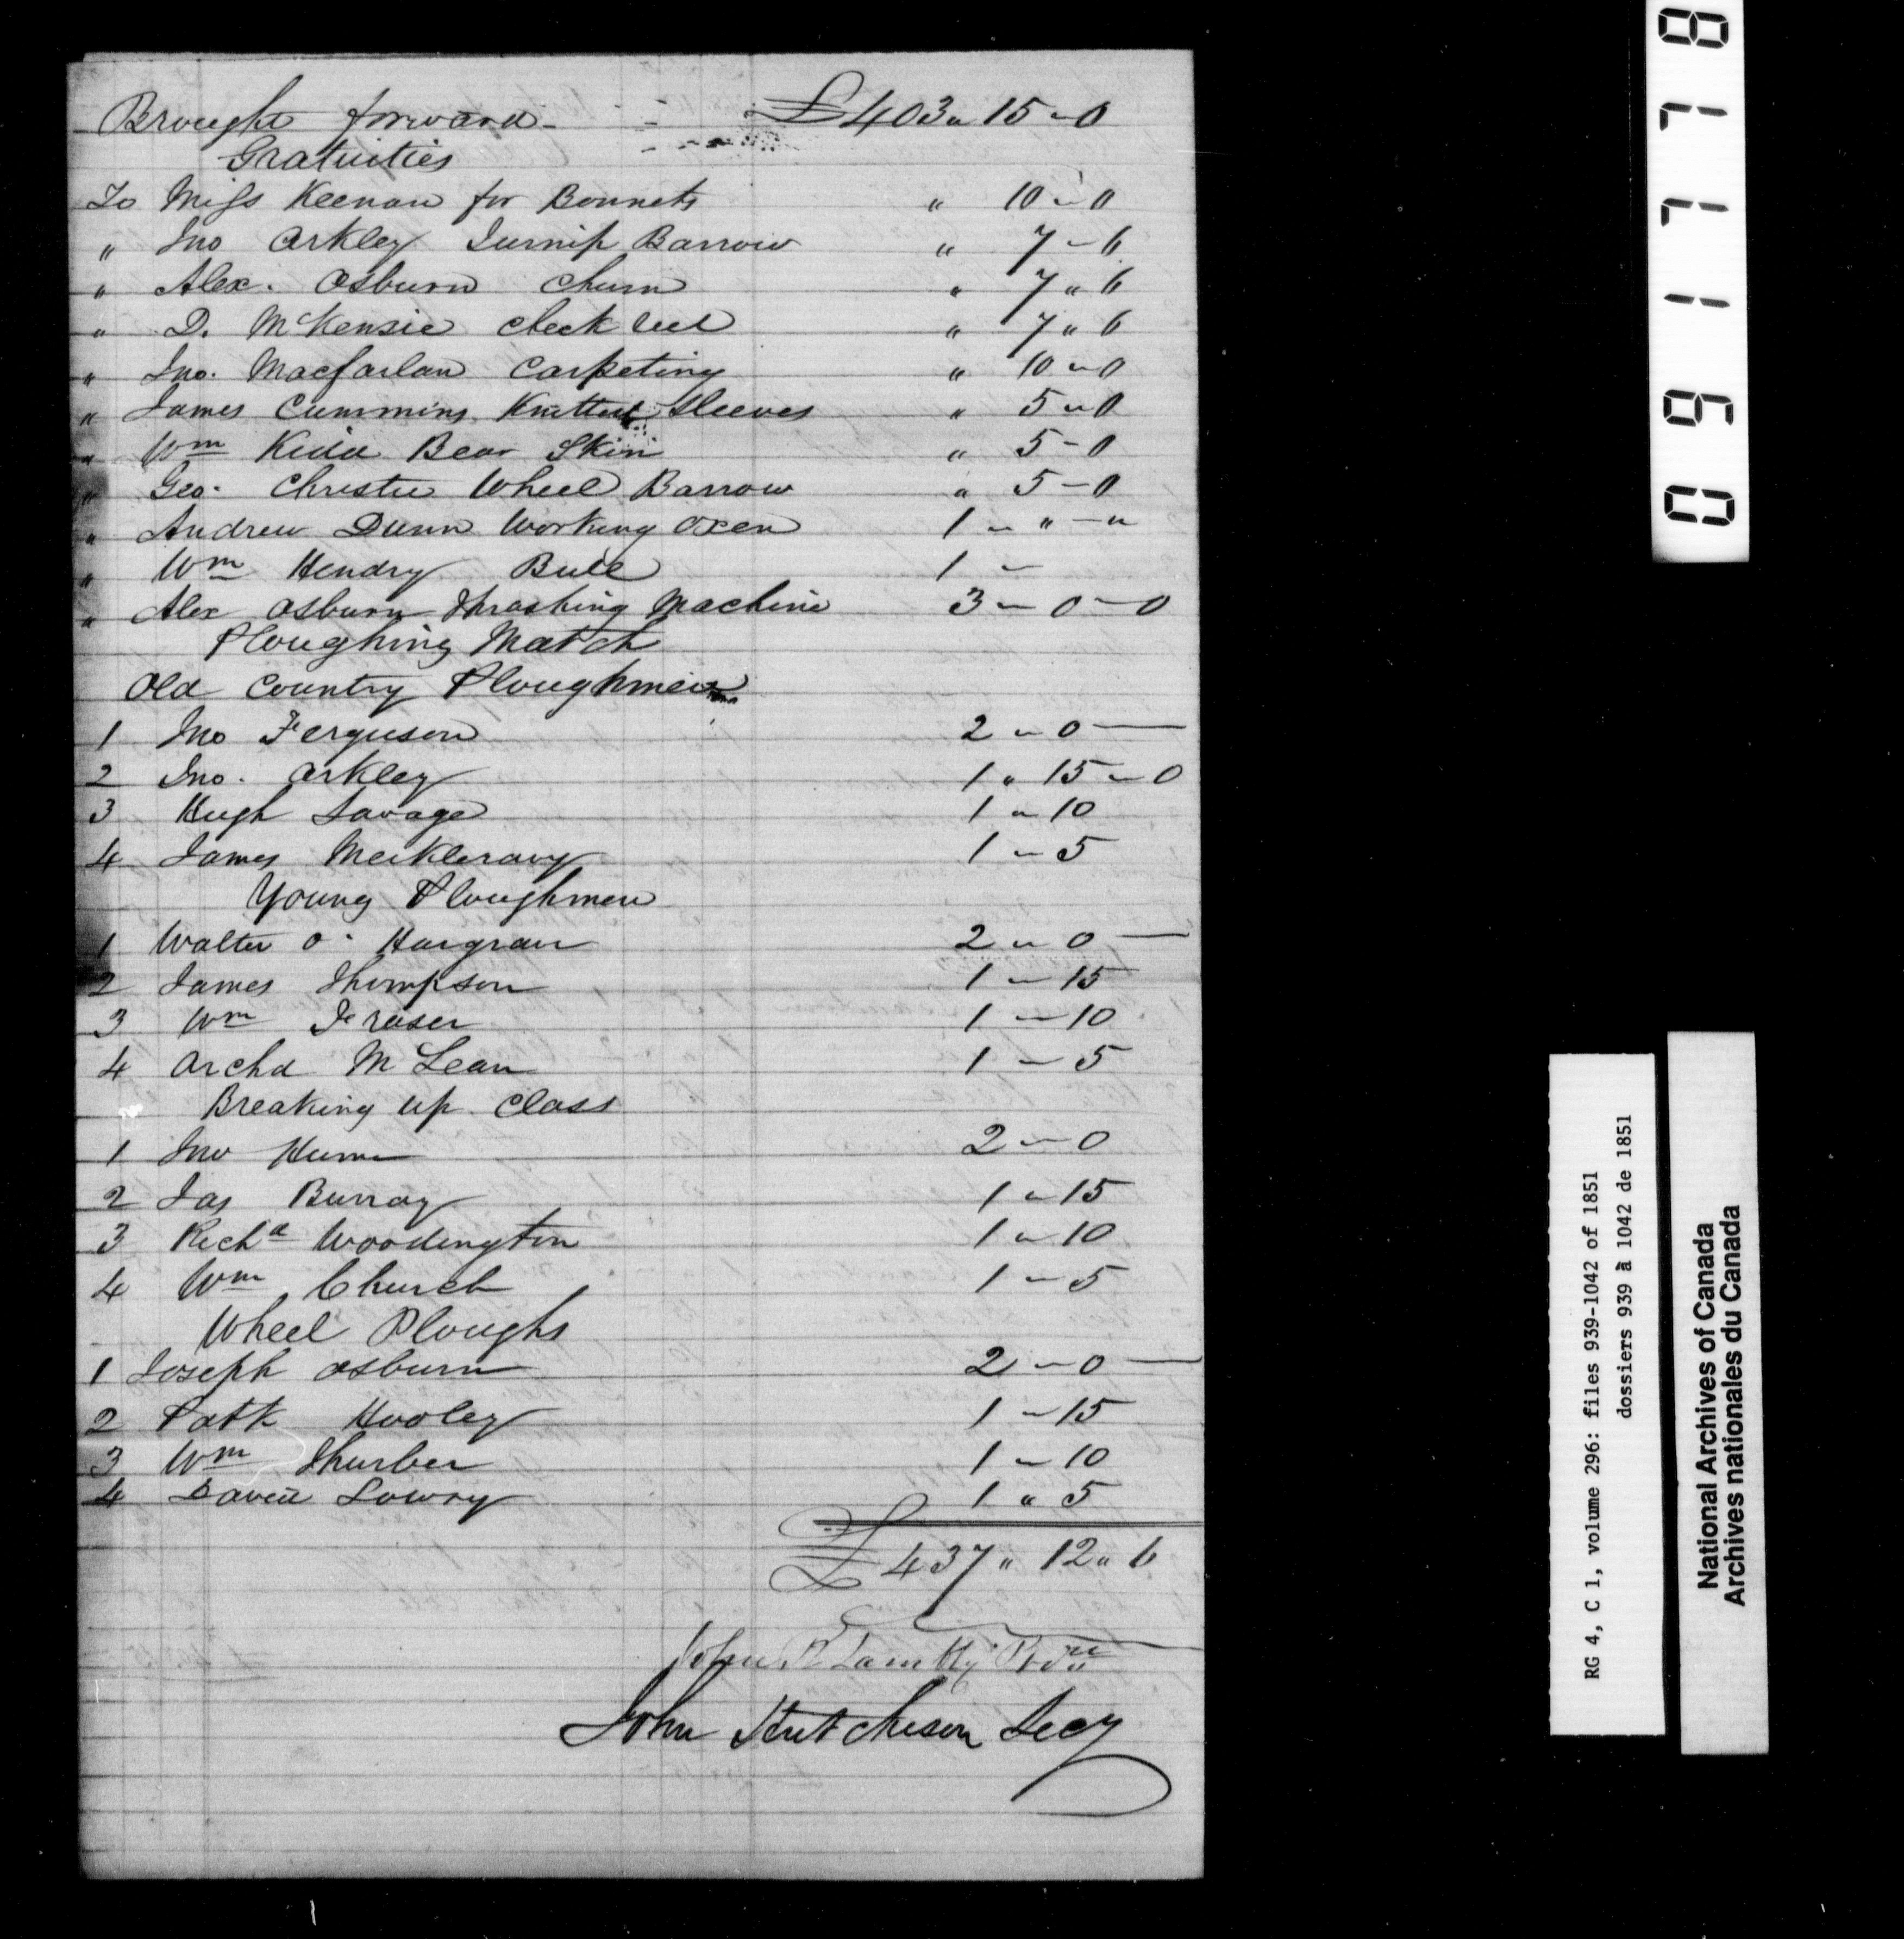 Brought forward - - £403 " 15 - 0
Gratuities
To Miss Keenan for Bonnets " 10 - 0
" Jno Arkley Turnip Barrow " 7 - 6
" Alex. Osburn Churn " 7 " 6
" D. McKensie check reel " 7 " 6
" Jno. Macfarlan Carpeting " 10 - 0
" James Cummins Knitted Sleeves " 5 - 0
" Wm Kidd Bear Skin " 5 - 0
" Geo. Christie Wheel Barrow " 5 - 0
" Andrew Dunn Working Oxen 1 - " - "
" Wm Hendry Bull 1 -
" Alex Osburn Thrashing Machine 3 - 0 - 0
Ploughing Match
Old Country Ploughmen
1 Jno Ferguson 2 - 0 -
2 Jno. Arkley 1 " 15 - 0
3 Hugh Savage 1 - 10
4 James 1 - 5
Young Ploughmen
1 Walter O. Hargrave 2 - 0 -
2 James Thompson 1 - 15
3 Wm Fraser 1 - 10
4 Archd McLean 1 - 5
Breaking up Class
1 Jno Hume 2 - 0
2 Jas 1 - 15
3 Richd Woodington 1 - 10
4 Wm Church 1 - 5
Wheel Ploughs
1 Joseph Osburn 2 - 0 -
2 Patk Hooley 1 - 15
3 Wm Thurber 1 - 10
4 David Lowry 1 " 5
£437 " 12 " 6
John
John Hutcheson Secy
091778
RG 4, C 1, volume 296: files 939-1042 of 1851
dossiers 939 à 1042 de 1851
National Archives of Canada
Archives nationales du Canada